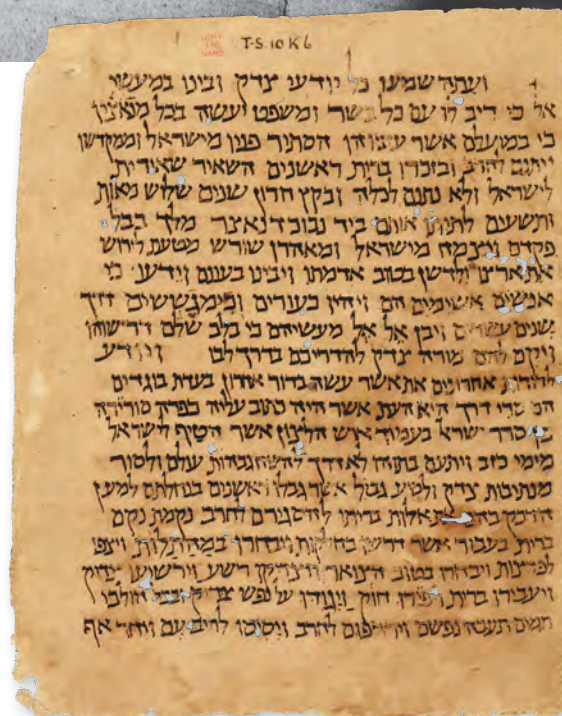 T-S. 10 K 6
ועתה שמעו כל יודעי צדק ובינו במעשי
אל כי ריב לו עם כל בשר ומשפט יעשה בכל מנאציו
כי במועלם אשר עזבוהו הסתיר פניו מישראל וממקדשו
ויתנם לחרב ובזכרו ברית ראשנים השאיר שאירית
לישראל ולא נתנם לכלה ובקץ חרון שנים שלוש מאות
ותשעים לתיתו אותם ביד נבוכדנאצר מלך בבל
פקדם ויצמח מישראל ומאהרן שורש מטעת לירוש
את ארצו ולדשן בטוב אדמתו ויבינו בעונם וידעו כי
אנשים אשימים הם ויהיו כעורים וכימגששים דרך
שנים עשרים ויבן אל אל מעשיהם כי בלב שלם דרשוהו
ויקם להם מורה צדק להדריכם בדרך לבו ויודע
לדורות אחרונים את אשר עשה בדור אחרון בעדת בוגדים
הם סרי דרך היא העת אשר היה כתוב עליה כפרה סורירה
כן סרר ישראל בעמוד איש הלצון אשר הטיף לישראל
מימי כזב ויתעם בתוהו לא דרך להשח גבהות עולם ולסור
מנתיבות צדק ולסיע גבול אשר גבלו ראשנים בנחלתם למען
הדבק בהם את אלות בריתו להסגירם לחרב נקמת נקם
ברית בעבור אשר דרשו בחלקות ויבחרו במהתלות ויצפו
לפרצות ויבחרו בטוב הצואר ויצדיקו רשע וירשיעו צדיק
ויעבירו ברית ויפירו חוק ויגודו על נפש צדיק ובכל הולכי
תמים תעבה נפשם וירדפום לחרב ויסיסו לריב עם ויחר אף